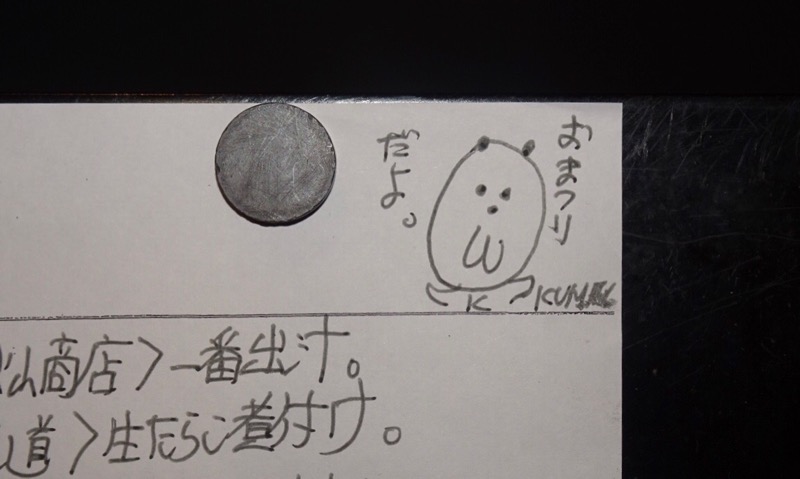 おまつり
だよ。
K
商店〉一番出汁。
道〉生たらこ煮付け。